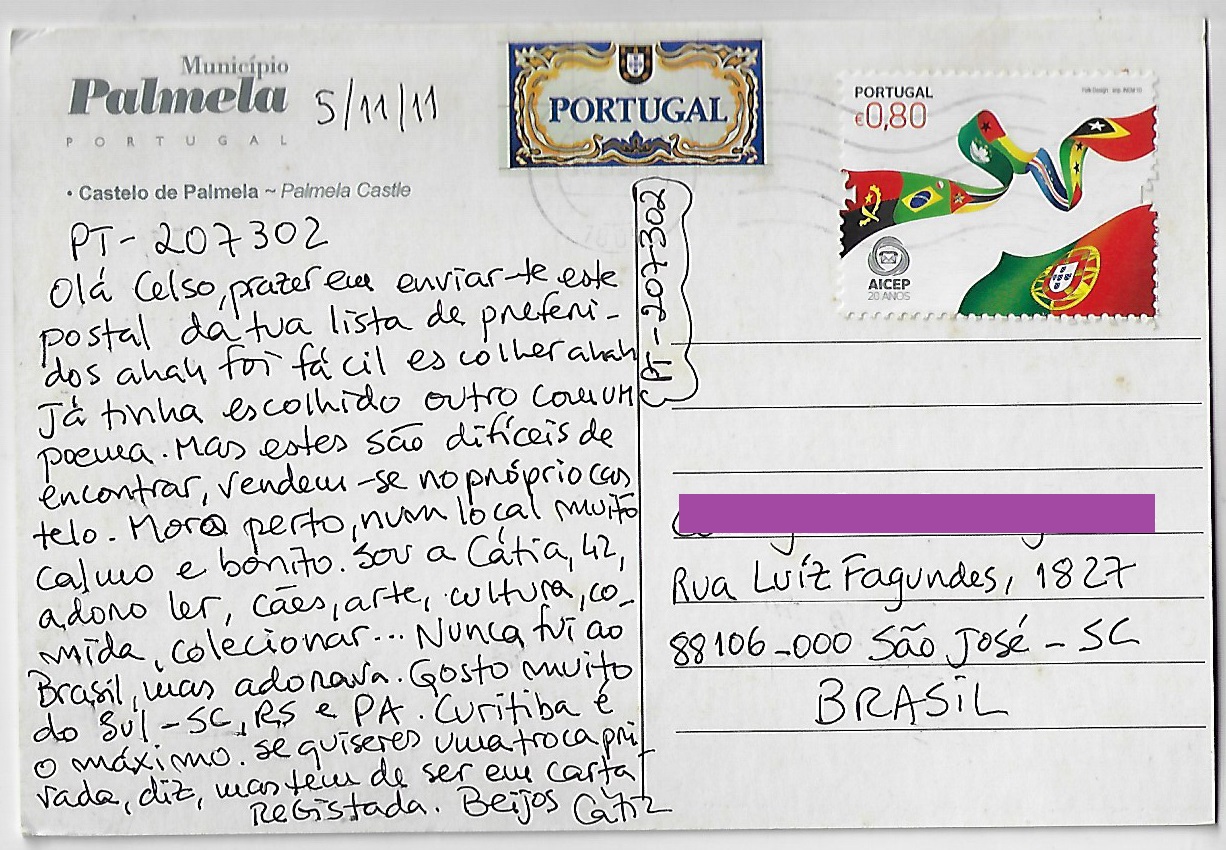 Município
Palmela
PORTUGAL
5/11/11
• Castelo de Palmela ~ Palmela Castle
PORTUGAL
PORTUGAL
€0,80
AICEP
20 ANOS
PT-207302
PT-207302
Olá Celso, prazer em enviar-te este
postal da tua lista de preferi-
dos ahah foi fácil escolher ahah
Já tinha escolhido outro com um
poema. Mas estes são difíceis de
encontrar, vendem-se no próprio cas
telo. Moro perto, num local muito
calmo e bonito. Sou a Cátia, 42,
adoro ler, cães, arte, cultura, co-
mida, colecionar... Nunca fui ao
Brasil, mas adorava. Gosto muito
do Sul - SC, RS e PA. Curitiba é
o máximo. se quiseres uma troca pri-
vada, diz, mas tem de ser em carta
REGISTADA. Beijos Cátia
Rua Luíz Fagundes, 1827
88106-000 São José - SC
BRASIL